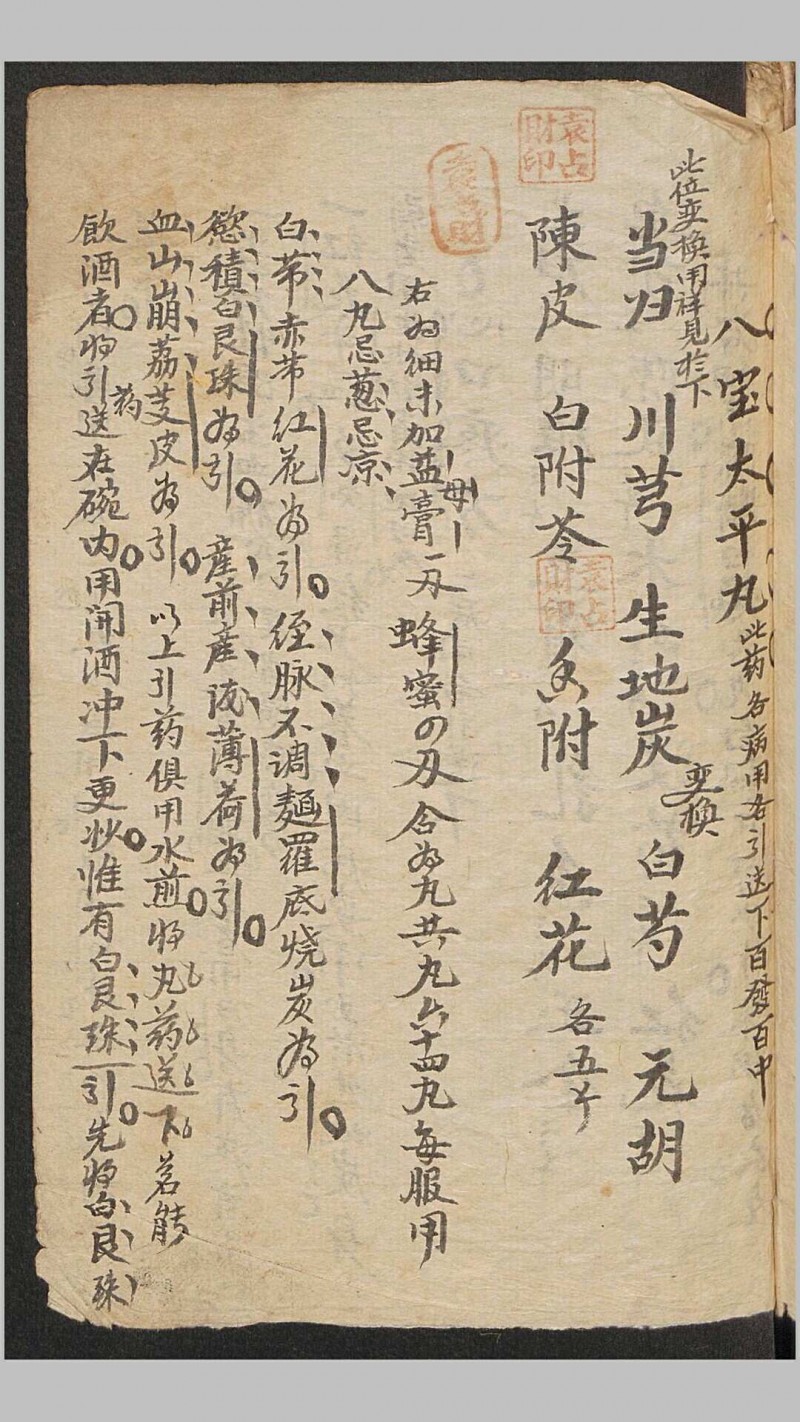 八宝太平丸 此药各病用各引送下百發百中
此位变换用詳見於下
当归 川芎 生地炭 变换 白芍 元胡
陳皮 白附苓 香附 红花 各五个
袁占財印
袁占財印
右为细末加益母膏一刄蜂蜜の刄合为丸共丸六十四丸每服用
八丸忌葱忌凉
白带赤带红花为引 经脉不调麵羅底燒炭为引
慾積白艮珠为引 産前産後薄荷为引
血山崩荔芰皮为引 以上引药俱用水煎将丸药送下若能
飲酒者将引药送在碗内用開酒冲下更妙惟有白艮珠引先将白艮珠